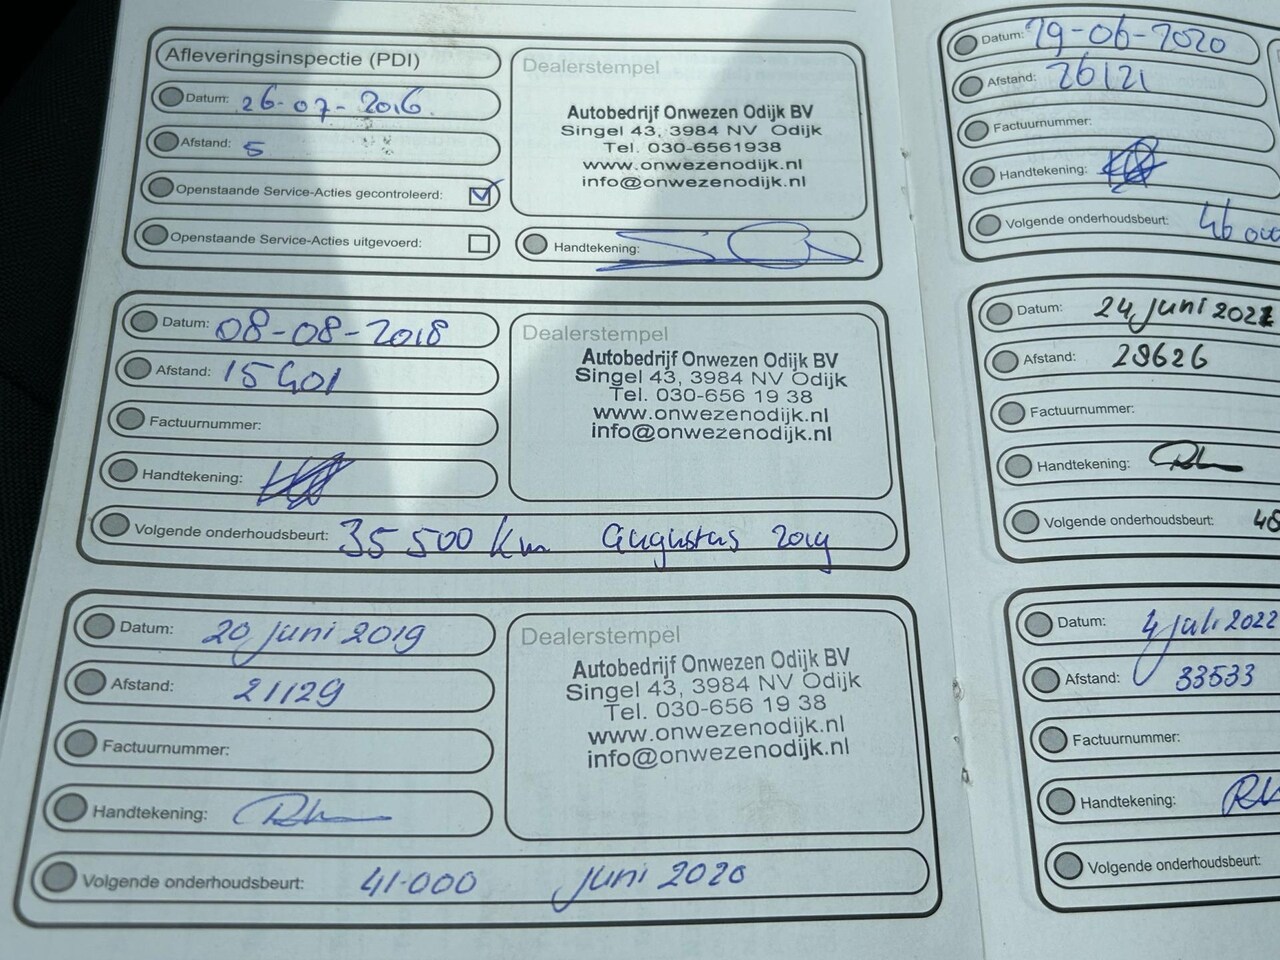 Afleveringsinspectie (PDI)
Datum: 26-07-2016
Afstand: 5
Openstaande Service-Acties gecontroleerd:
Openstaande Service-Acties uitgevoerd:
Dealerstempel
Autobedrijf Onwezen Odijk BV
Singel 43, 3984 NV Odijk
Tel. 030-6561938
www.onwezenodijk.nl
info@onwezenodijk.nl
Handtekening:
Datum: 08-08-2018
Afstand: 15401
Factuurnummer:
Handtekening:
Volgende onderhoudsbeurt: 35 500 km augustus 2019
Dealerstempel
Autobedrijf Onwezen Odijk BV
Singel 43, 3984 NV Odijk
Tel. 030-656 19 38
www.onwezenodijk.nl
info@onwezenodijk.nl
Datum: 20 juni 2019
Afstand: 21129
Factuurnummer:
Handtekening:
Volgende onderhoudsbeurt: 41.000 juni 2020
Dealerstempel
Autobedrijf Onwezen Odijk BV
Singel 43, 3984 NV Odijk
Tel. 030-656 19 38
www.onwezenodijk.nl
info@onwezenodijk.nl
Datum: 29-06-2020
Afstand: 26121
Factuurnummer:
Handtekening:
Volgende onderhoudsbeurt: 46 000
Datum: 24 juni 2021
Afstand: 29626
Factuurnummer:
Handtekening:
Volgende onderhoudsbeurt: 48
Datum: 4 juli 2022
Afstand: 33533
Factuurnummer:
Handtekening:
Volgende onderhoudsbeurt: